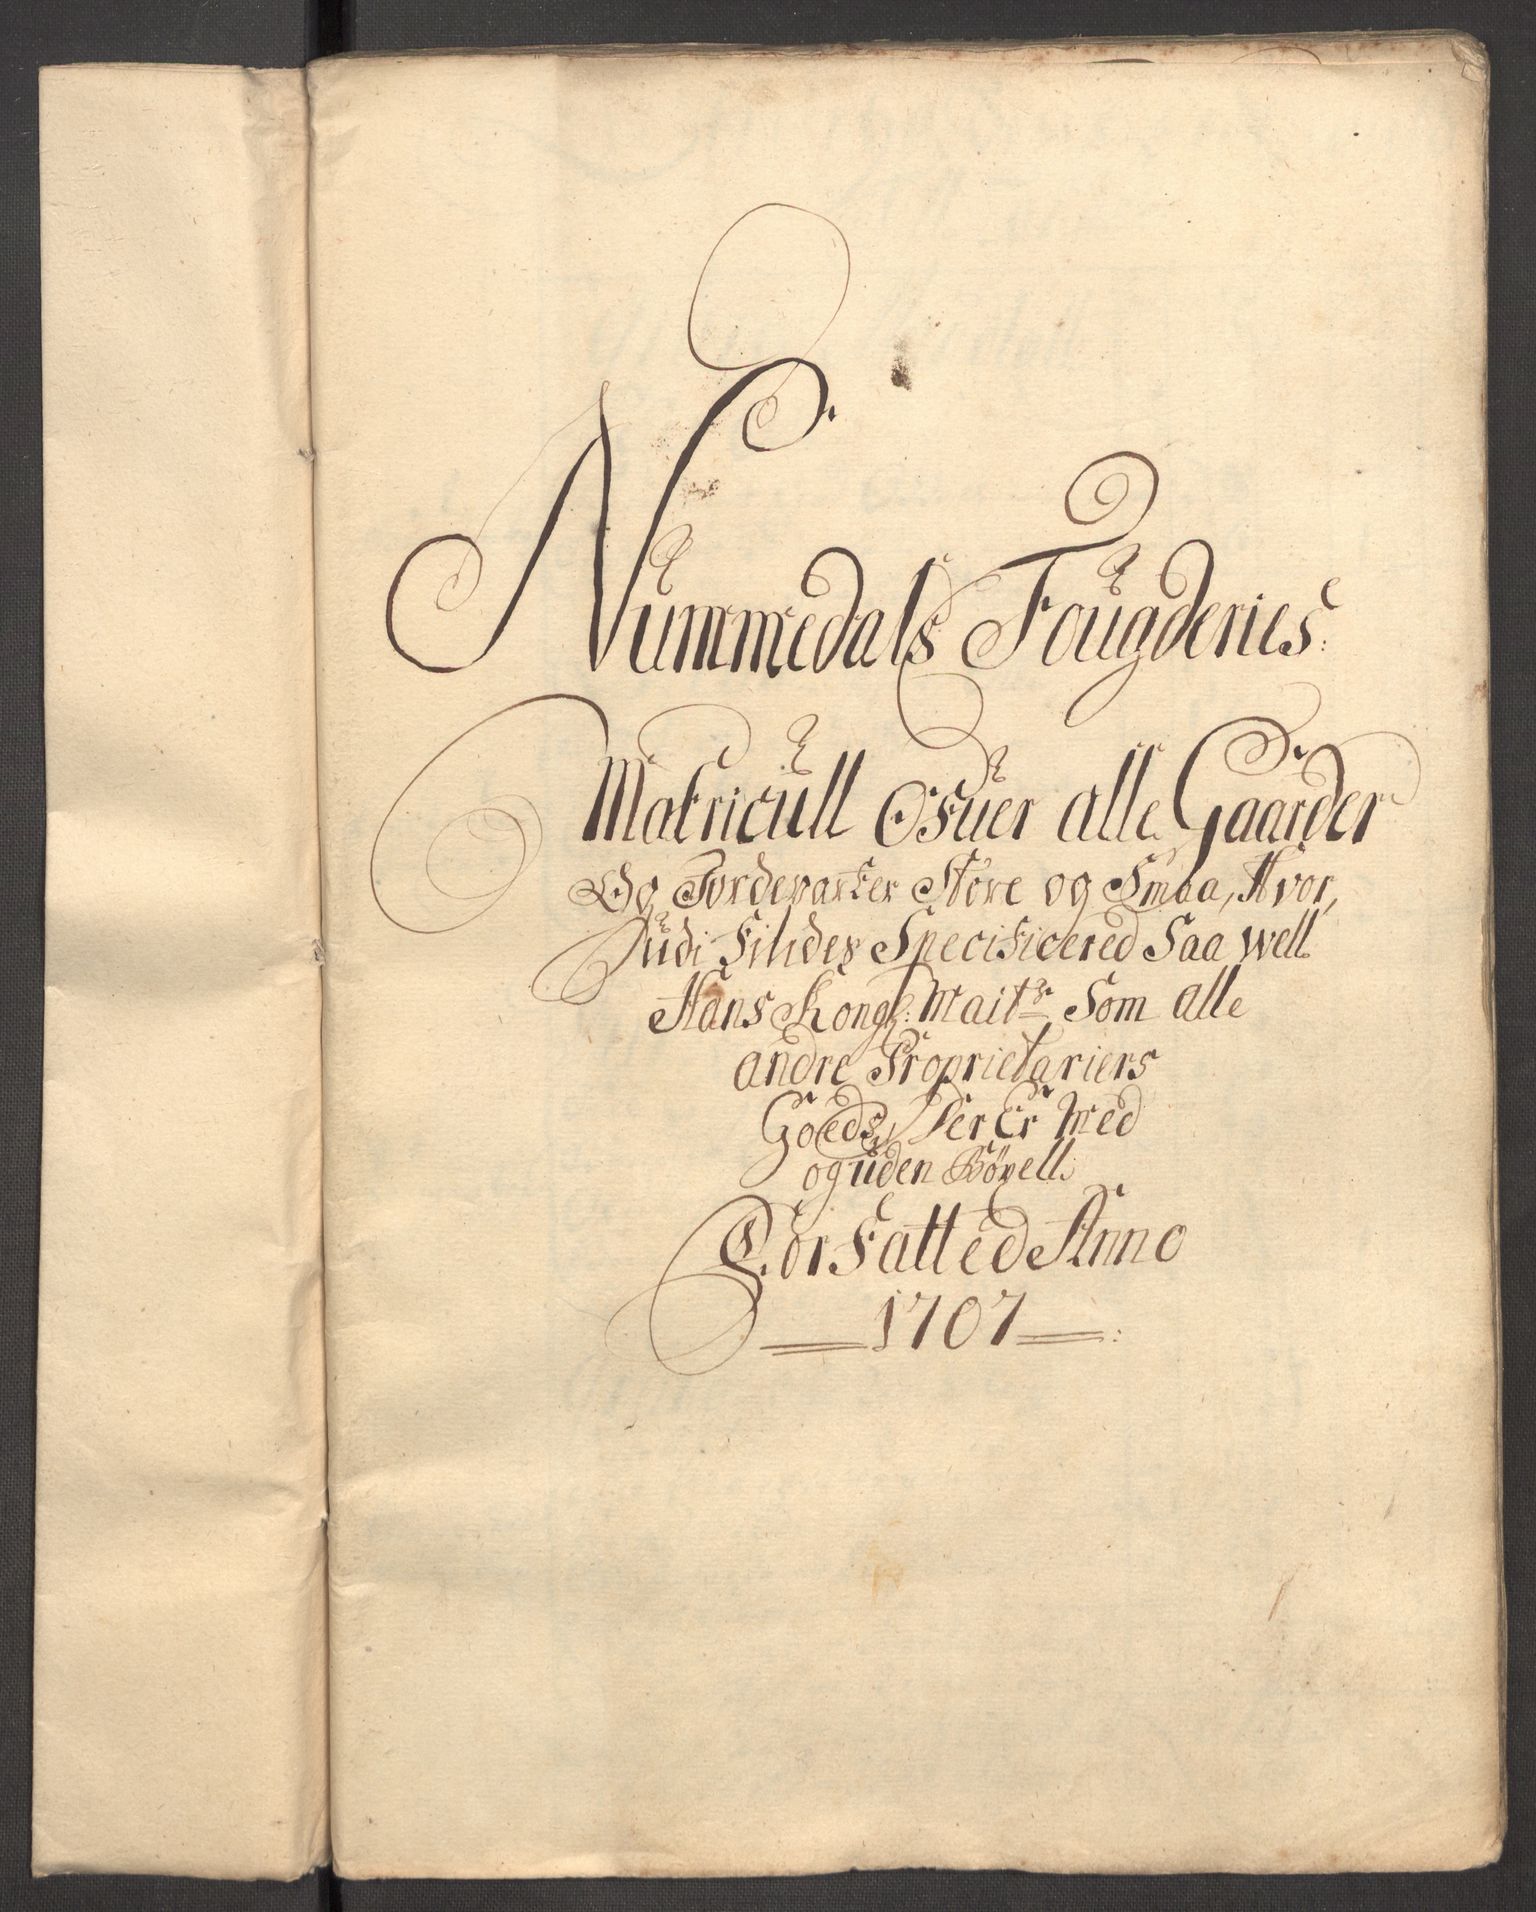 Nummedals Fougderies:
Matricull Ofuer alle Gaarder
Og Jordeparter Store og Smaa, Hvor,
Udi findes Specificered Saa well
Hans Kongl: Maitz Som alle
andre Proprietariers
Goeds, Der Er Med
og uden Bøxell
Forfatted Anno
1707